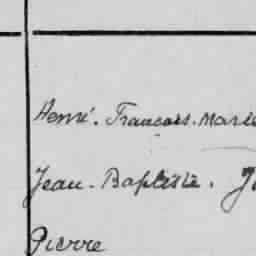 Henri. François. Marie
Jean-Baptiste. J
Pierre